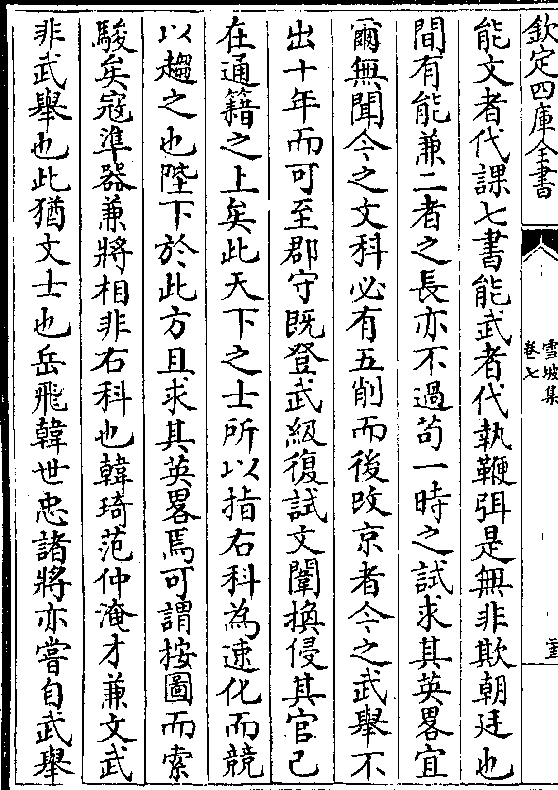 欽定四庫全書
雪坡集
卷七
能文者代課七書能武者代執鞭弭是無非欺朝廷也
間有能兼二者之長亦不過苟一時之試求其英畧宜
爾無聞今之文科必有五削而後改京者今之武舉不
出十年而可至郡守既登武級復試文闈換侵其官已
在通籍之上矣此天下之士所以指右科為速化而競
以趨之也陛下於此方且求其英畧焉可謂按圖而索
駿矣冦準器兼將相非右科也韓琦范仲淹才兼文武
非武舉也此猶文士也岳飛韓世忠諸將亦嘗自武舉